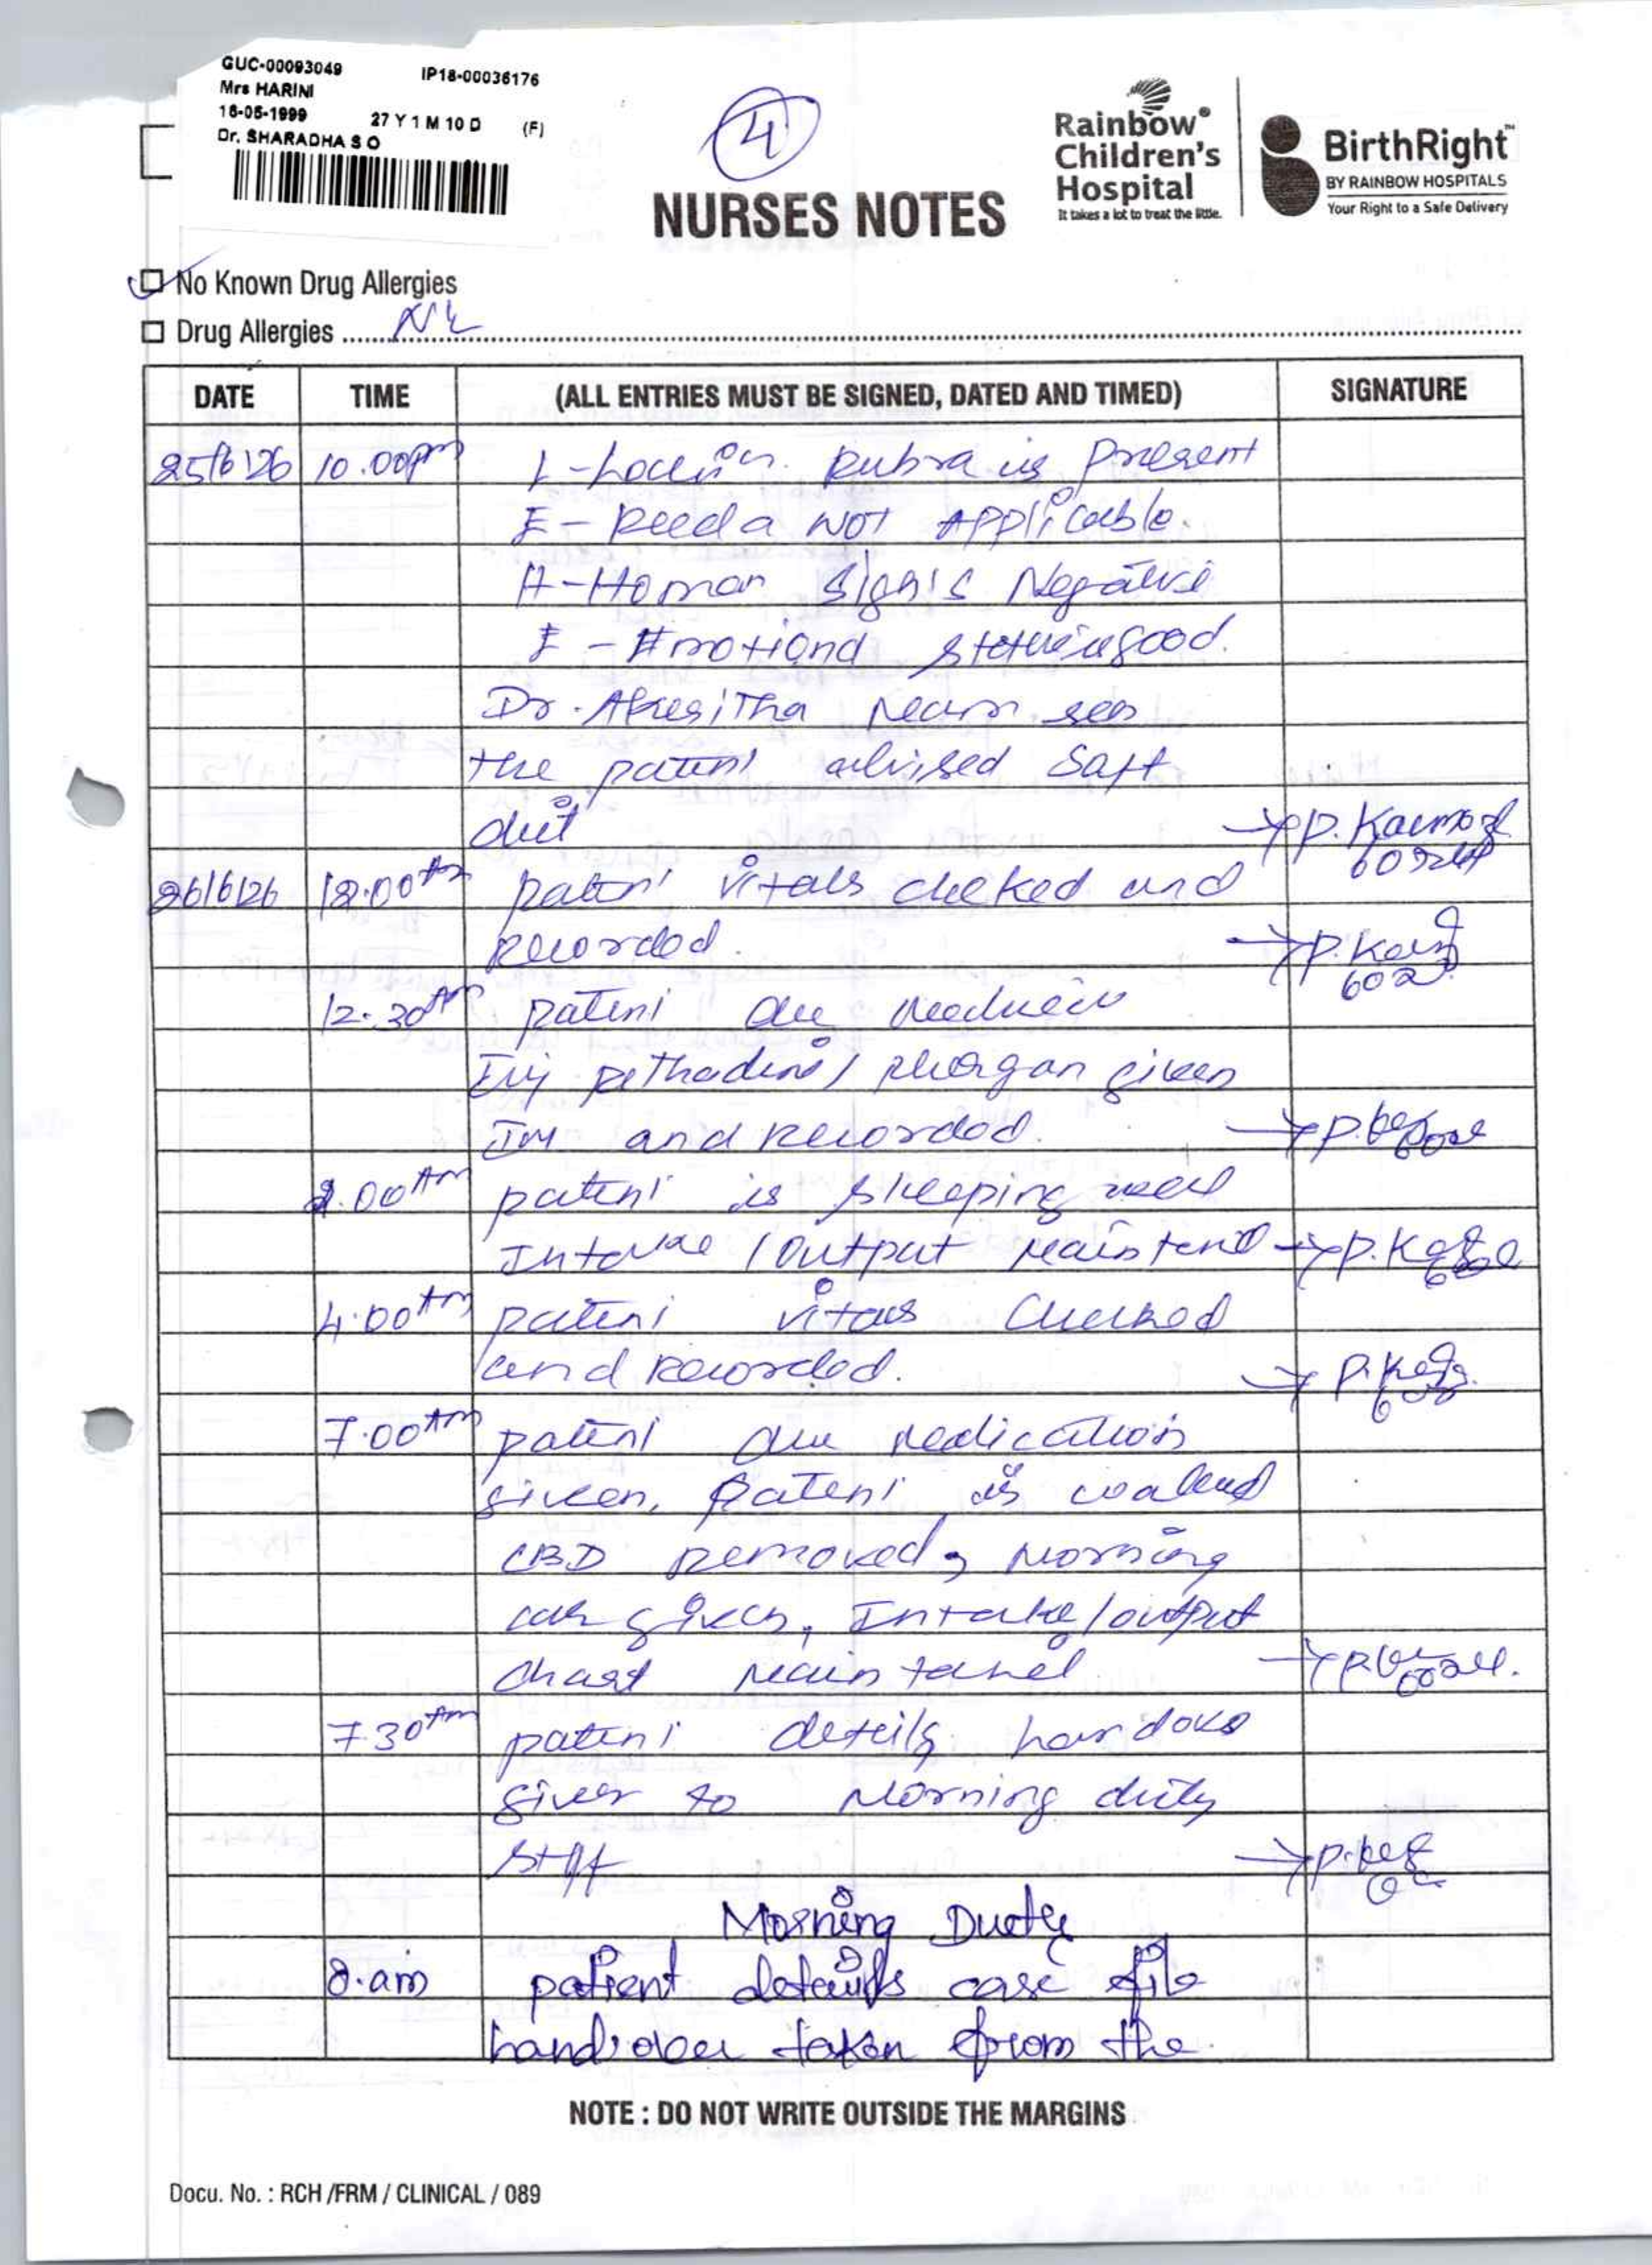 GUC-00093049 IP18-00036176
Mrs HARINI
16-05-1999 27 Y 1 M 10 D (F)
Dr. SHARADHA S O
4
NURSES NOTES
Rainbow®
Children's
Hospital
It takes a lot to treat the little.
BirthRight™
BY RAINBOW HOSPITALS
Your Right to a Safe Delivery
No Known Drug Allergies
Drug Allergies
DATE TIME (ALL ENTRIES MUST BE SIGNED, DATED AND TIMED) SIGNATURE
25/6/26 10.00pm L - Rubra is Present
E - Reeda NOT Applicable.
H - Homan Sign's Negative
E - Emotiond good.
Dr. seen
the patient advised Saft
diet
26/6/26 12.00Am patient vitals cheked and
Recorded. → P.
12.30Am patient due
Inj pethadine / phergan given
IM and Recorded.
2.00Am patient is sleeping well
Intake / output
4.00Am patient vitals checked
and Recorded.
7.00Am patient due medication
given, patient is
CBD Removed, Morning
care given, Intake / output
chart
7.30Am patient details
given to Morning duty
staff
Morning Duety
8.am patient details case file
handover taken from the
NOTE : DO NOT WRITE OUTSIDE THE MARGINS
Docu. No. : RCH /FRM / CLINICAL / 089